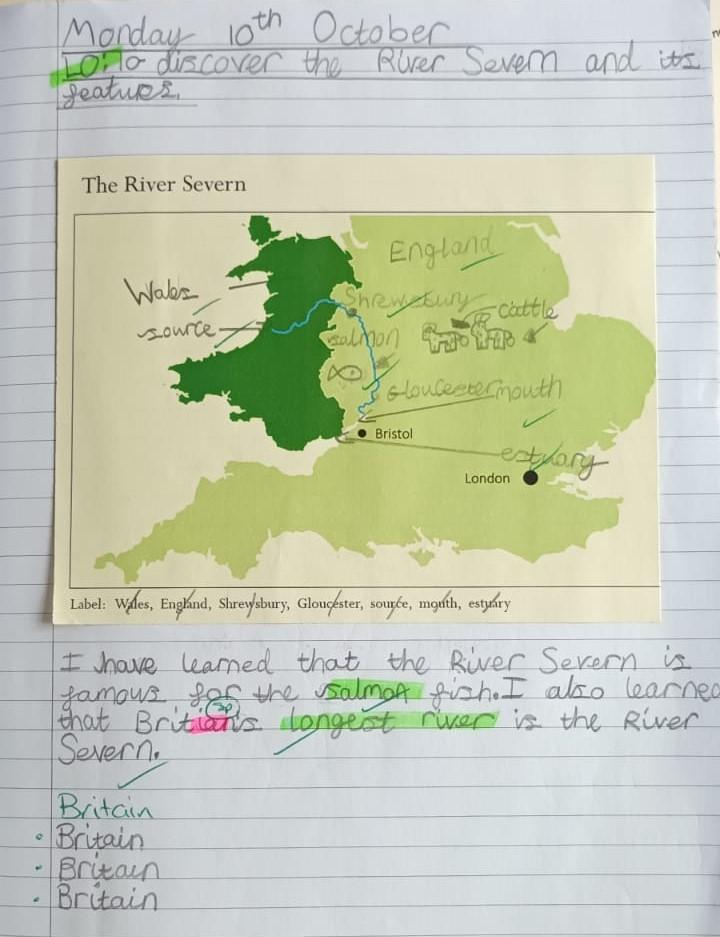 Monday 10th October
LO: To discover the River Severn and its
features.
The River Severn
England
Wales
Shrewsbury
cattle
source
salmon
Gloucester mouth
Bristol
estuary
London
Label: Wales, England, Shrewsbury, Gloucester, source, mouth, estuary
I have learned that the River Severn is
famous for the salmon fish. I also learned
sp
that Britian's longest river is the River
Severn.
Britain
Britain
Britain
Britain